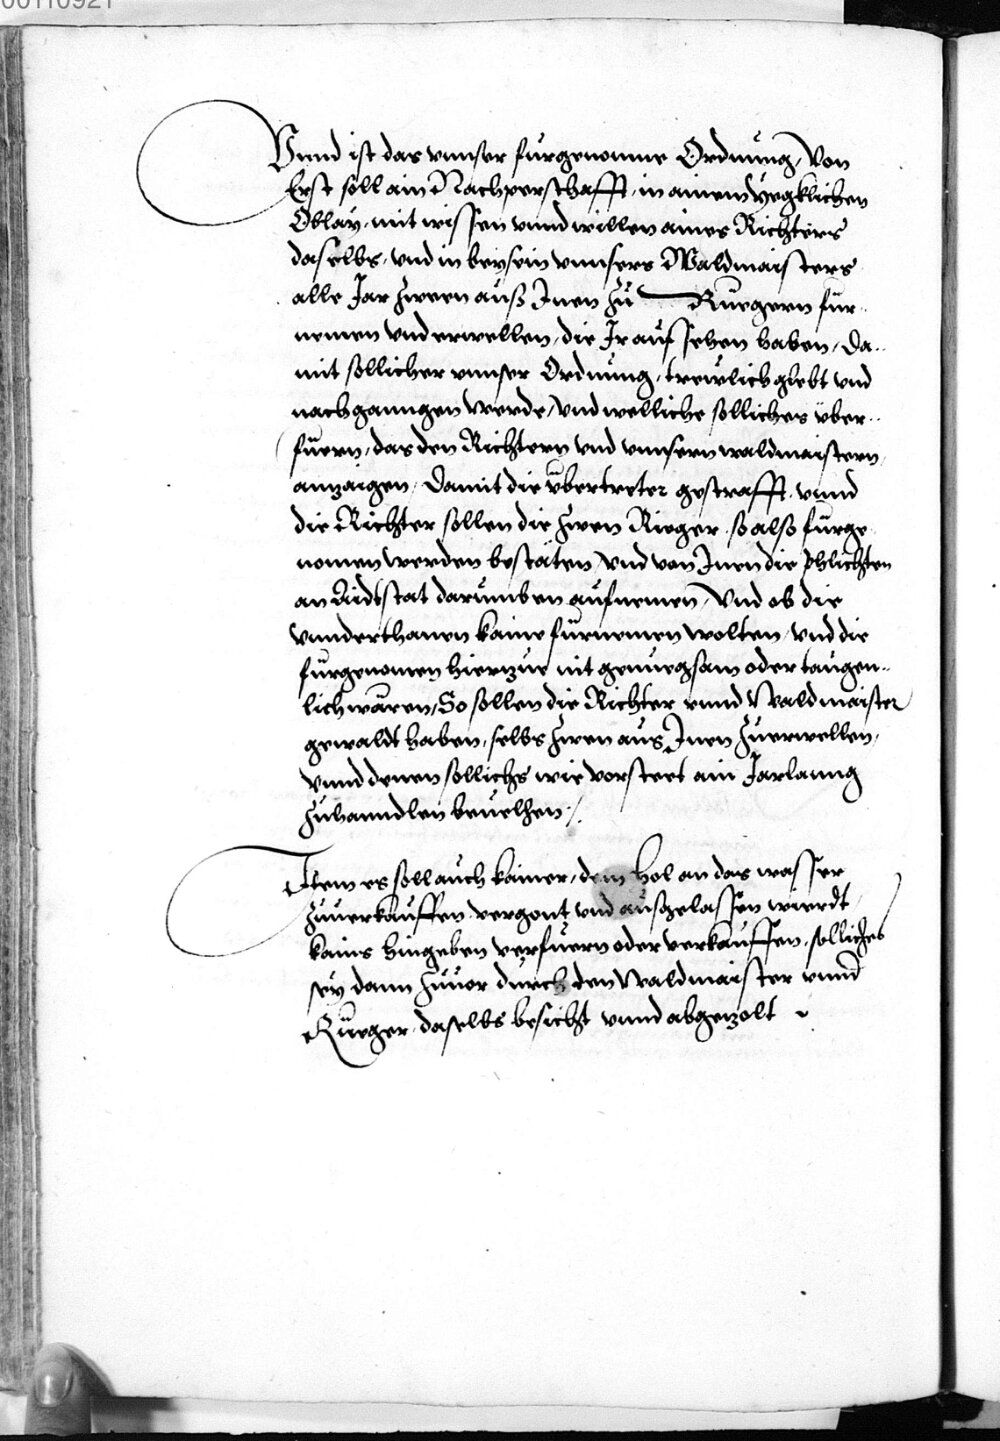 00110921
Vnnd ist das vnnser fürgenomne Ordnung, Von
Erst soll ain Nachperschafft, in ainem yegklichen
Oblay, mit wissen vnnd willen aines Richters
daselbs, vnd in beysein vnnsers Waldmaisters
alle Jar zween auß Inen zu Ruegern für„
nemen vnd erwellen, die Ir aufsehen haben, Da„
mit sollicher vnnser Ordnung, trewlich glebt vnd
nachganngen werde, Vnd welliche solliches über„
fuern, das den Richtern vnd vnnsern waldmaistern,
anzaigen, Damit die übertreter gestrafft, vnnd
die Richter sollen die zwen Rieger so also fürge„
nomen werden bestäten, Vnd von Inen die phlichten
an Aidsstat darumben aufnemen, Vnd ob die
vnnderthanen kaine fürnemen wolten, vnd die
fürgenomen hierzue nit genuegsam oder taugen„
lich wären, So sollen die Richter vnnd Waldmaister
gewaldt haben, selbs zwen aus Inen zuerwellen,
vnnd denen sollichs wie vorsteet ain Jarlanng
zuhanndlen beuelhen ./.
Item es soll auch kainer, dem hol an das wasser
zuuerkauffen vergont vnd ausgelassen wierdt,
kains hingeben verfuern oder verkauffen, solliches
sey dann zuuor durch den Waldmaister vnnd
Rueger, daselbs besicht vnnd abgezolt